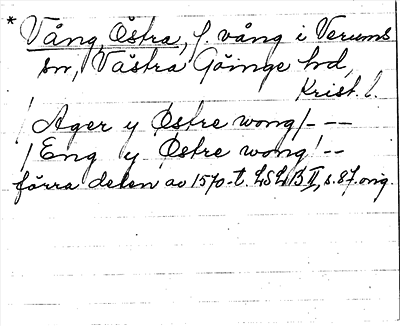 * Vång, Östra, f. vång i Verums
sn, Västra Göinge hd,
Krist. l.
/ Ager y Østre wong/ - - -
/ Eng y Østre wong/ - -
förra delen av 1570-t. LSLB II, s. 87. orig.